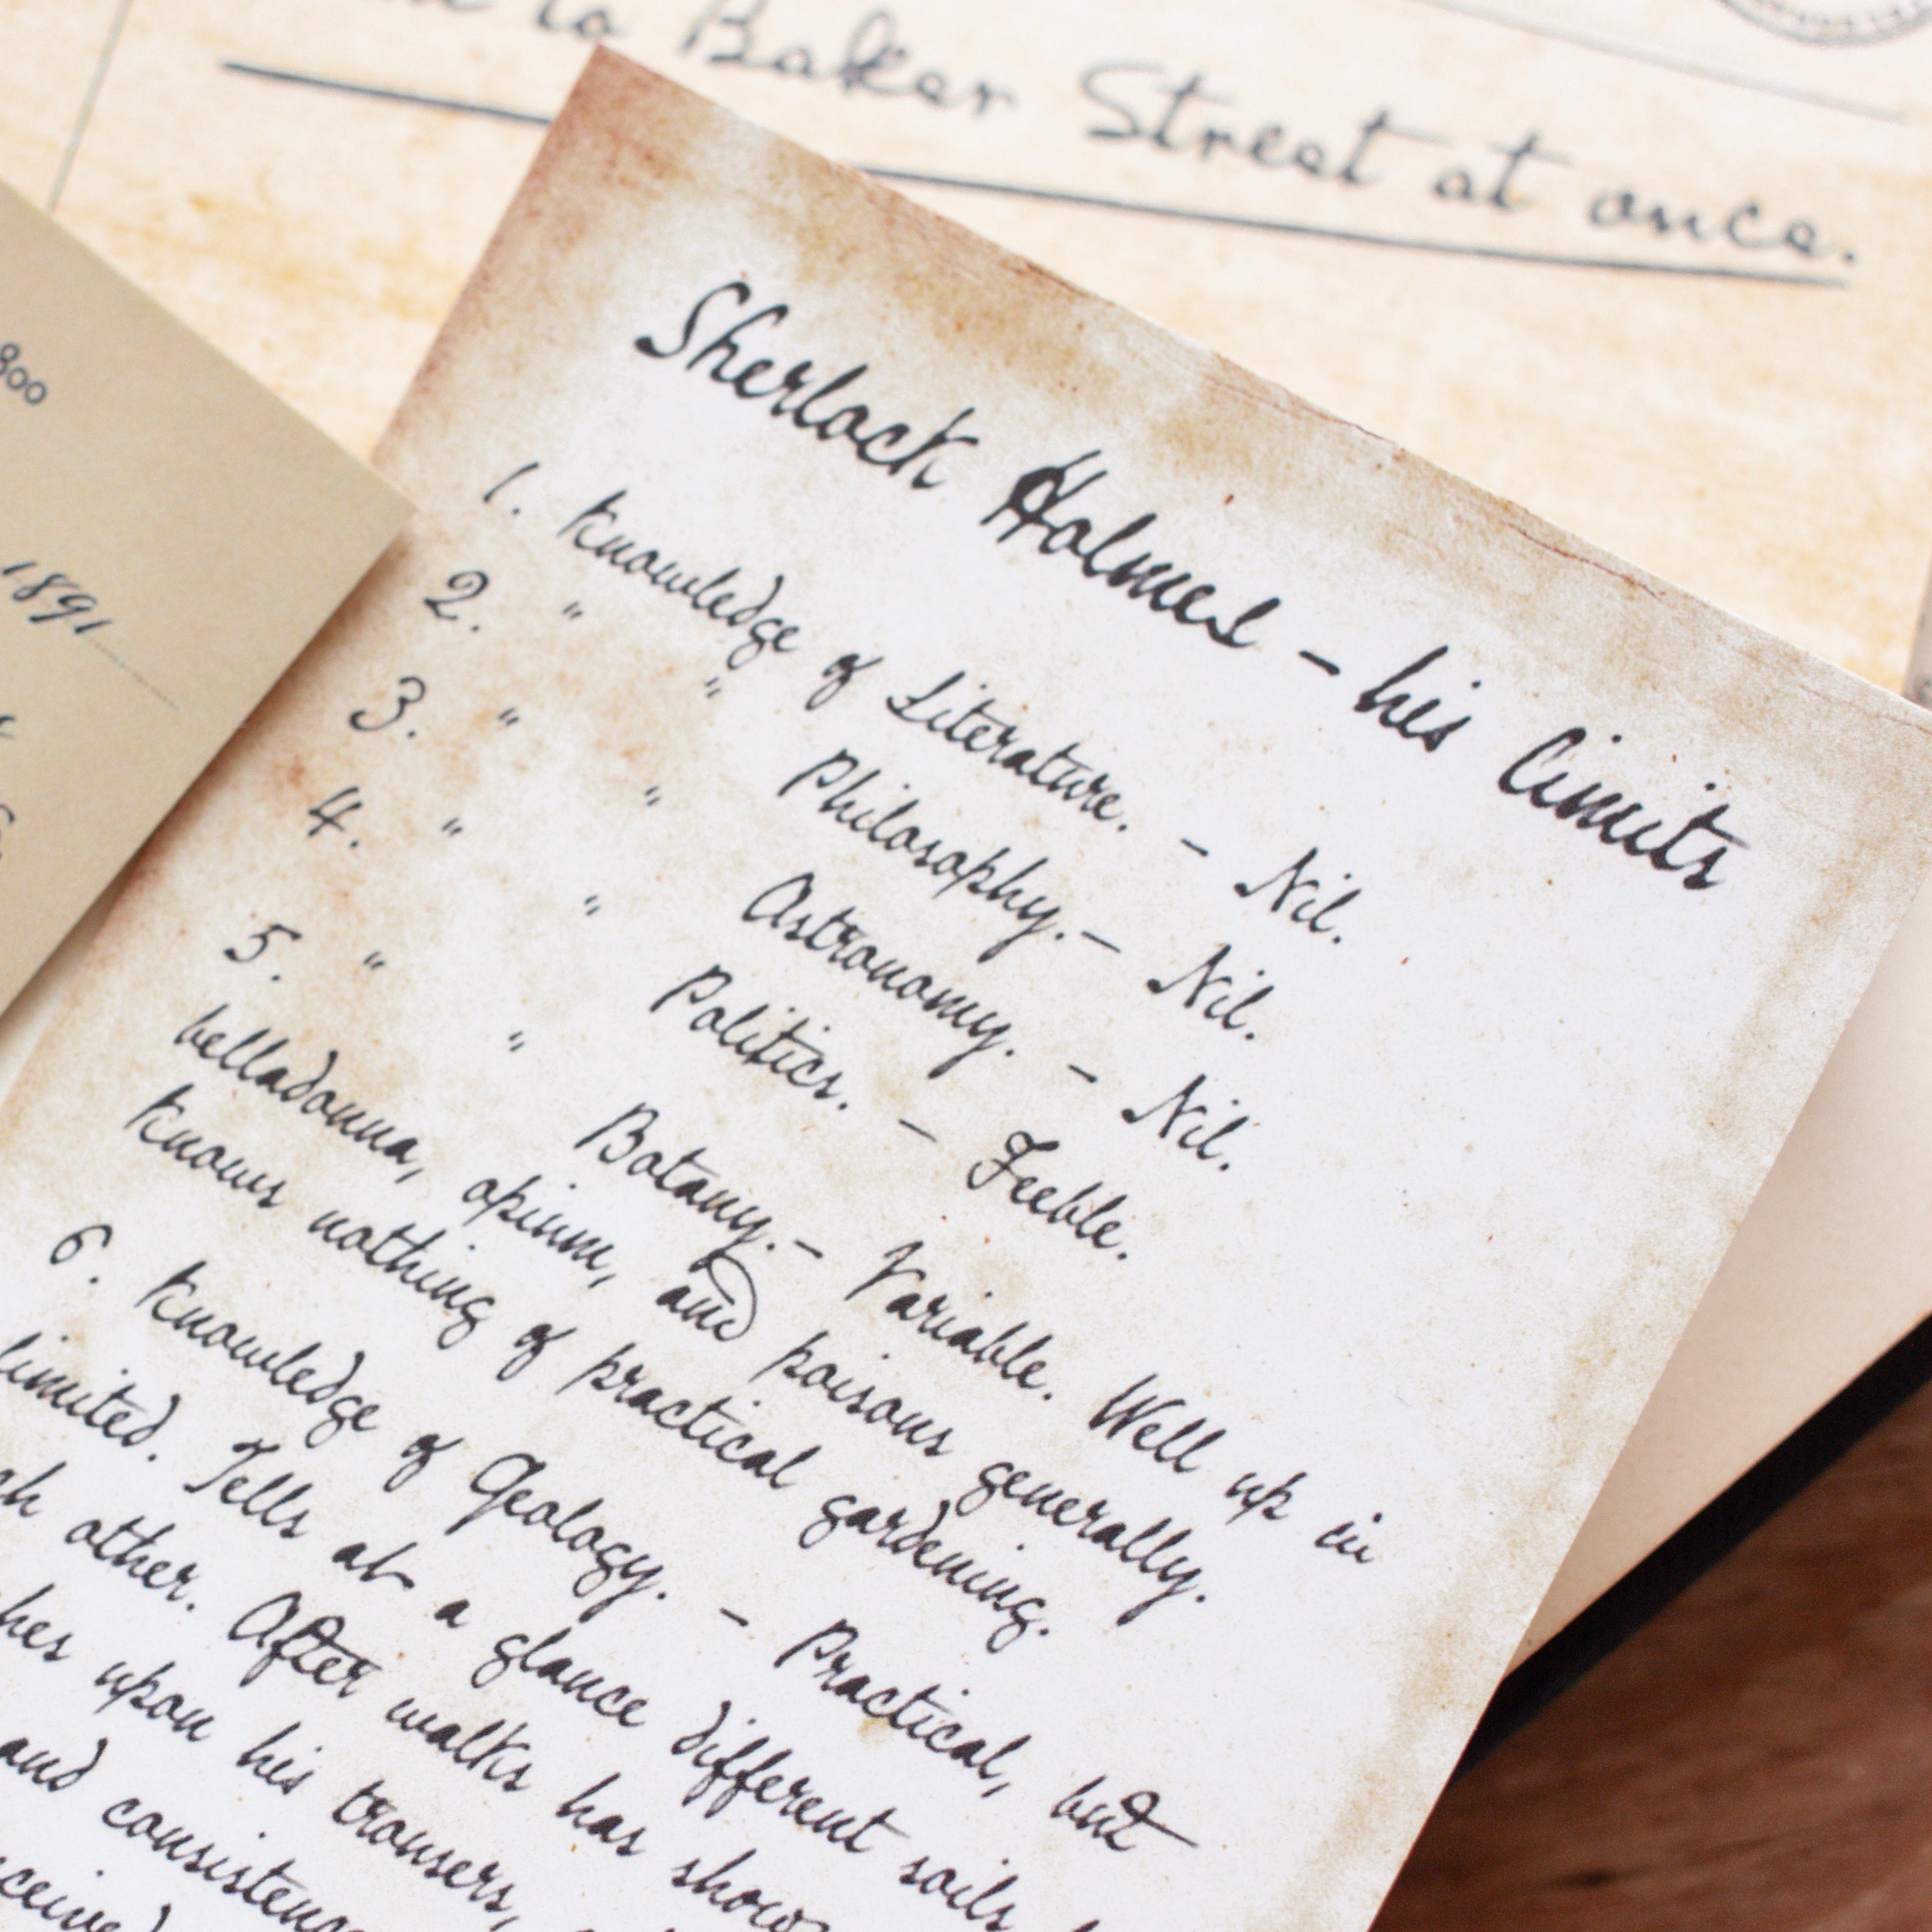 to Baker Street at once.
800
1891
Sherlock Holmes – his limits
1. Knowledge of Literature. – Nil.
2. " " Philosophy. – Nil.
3. " " Astronomy. – Nil.
4. " " Politics. – Feeble.
5. " " Botany. – Variable. Well up in
belladonna, opium, and poisons generally.
Knows nothing of practical gardening.
6. Knowledge of Geology. – Practical, but
limited. Tells at a glance different soils
other. After walks has
upon his trousers,
and